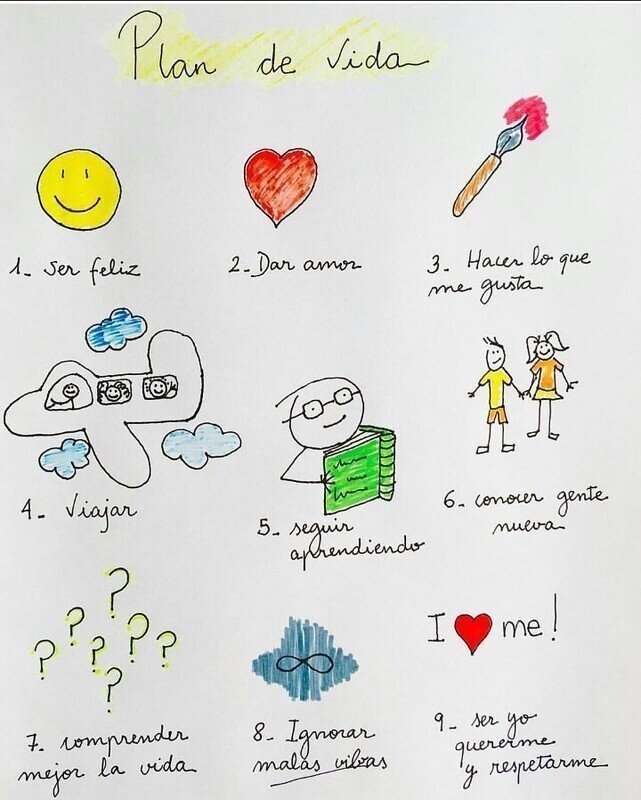 Plan de vida
1- Ser feliz
2- Dar amor
3- Hacer lo que
me gusta
4- Viajar
5- seguir
aprendiendo
6- conocer gente
nueva
7- comprender
mejor la vida
8- Ignorar
malas vibras
I ❤ me!
9- ser yo
quererme
y respetarme